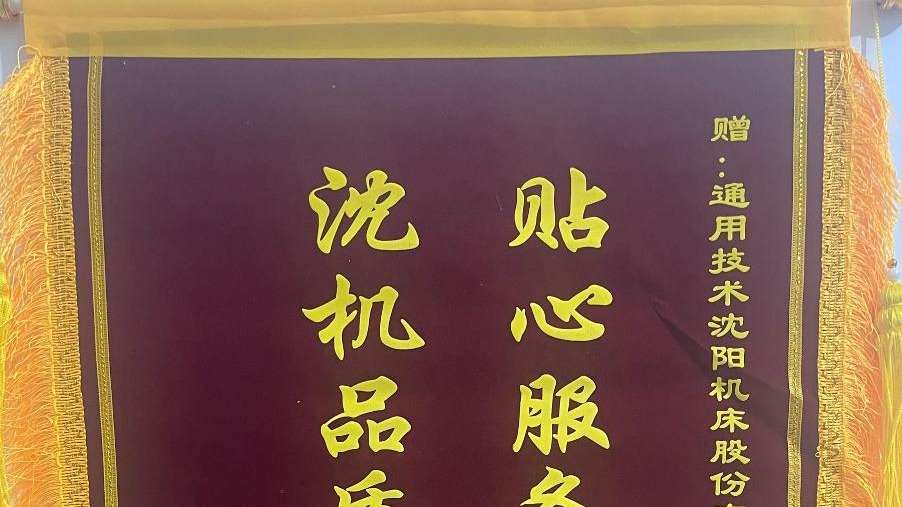 赠：通用技术沈阳机床股份
贴心服务
沈机品质